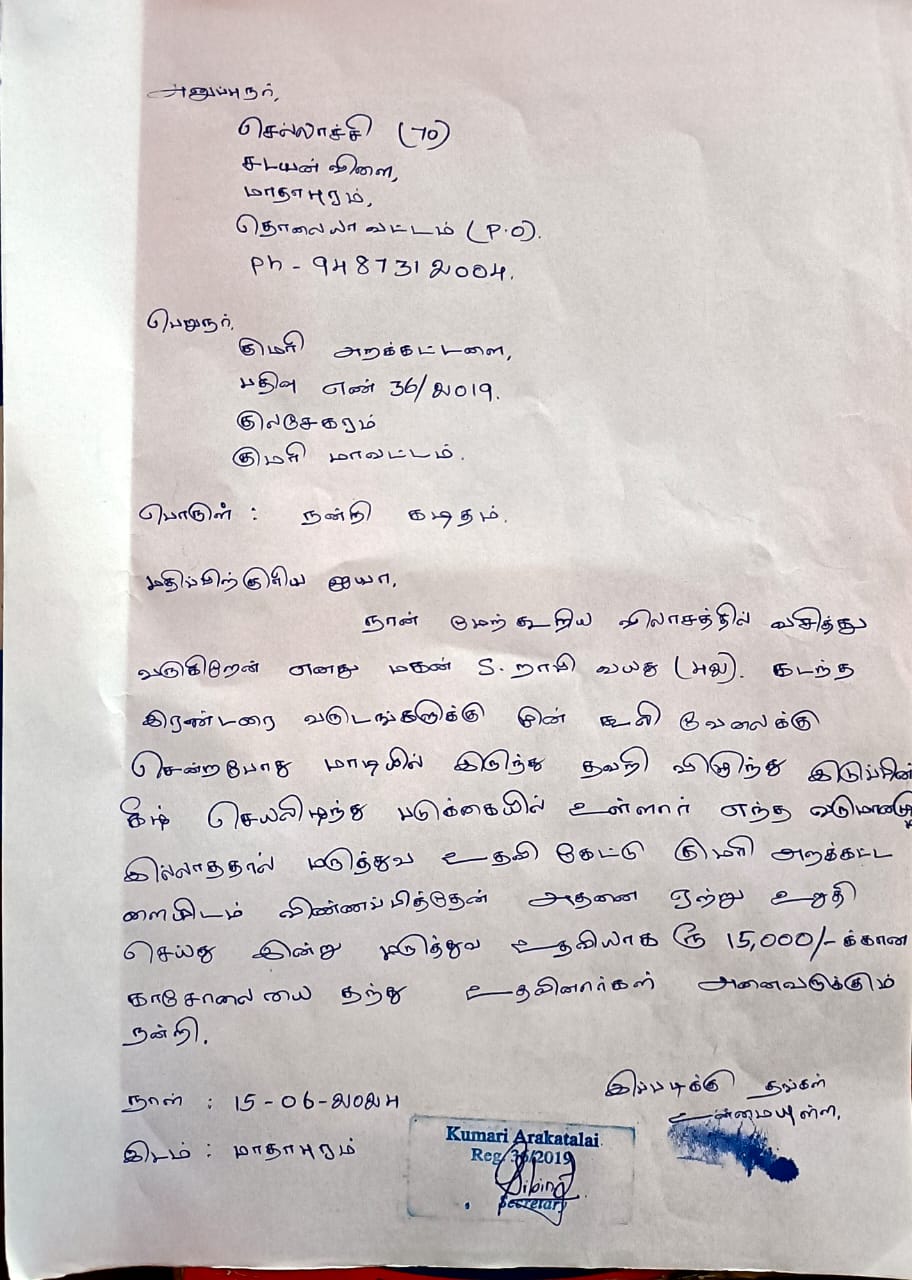 அனுப்புநர்,
செல்லாச்சி (70)
சடயன் விளை,
மாதாபுரம்,
தொலையாவட்டம் (P.O).
Ph - 9487312004.
பெறுநர்,
குமரி அறக்கட்டளை,
பதிவு எண் 36/2019.
குலசேகரம்
குமரி மாவட்டம்.
பொருள் : நன்றி கடிதம்.
மதிப்பிற்குரிய ஐயா,
நான் மேற்கூறிய விலாசத்தில் வசித்து
வருகிறேன் எனது மகன் S. ராபி வயது கடந்த
இரண்டரை வருடங்களுக்கு முன் கூலி வேலைக்கு
சென்றபோது மாடியில் இருந்து தவறி விழுந்து இடுப்பின்
கீழ் செயலிழந்து படுக்கையில் உள்ளார் எந்த வருமானமு
இல்லாததால் மருத்துவ உதவி கேட்டு குமரி அறக்கட்ட
ளையிடம் விண்ணப்பித்தேன் அதனை ஏற்று உறுதி
செய்து இன்று மருத்துவ உதவியாக ரூ 15,000/- க்கான
காசோலையை தந்து உதவினார்கள் அனைவருக்கும்
நன்றி.
நாள் : 15-06-2024
இடம் : மாதாபுரம்
இப்படிக்கு தங்கள்
உண்மையுள்ள,
Kumari Arakatalai
Reg. 36/2019
Secretary